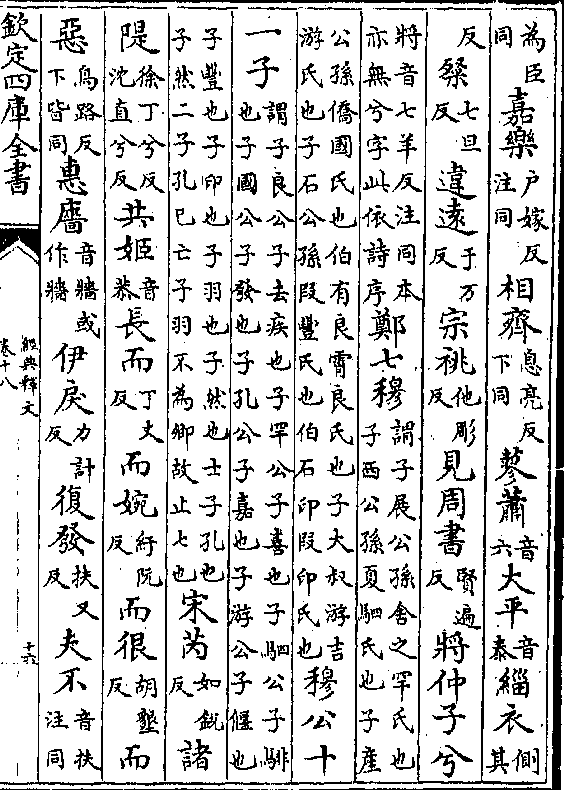 為臣同嘉樂户嫁反注同相齊息亮反下同蓼蕭音六大平音泰緇衣側其
反粲七旦反違遠于万反宗祧他彫反見周書賢遍反將仲子兮
將音七羊反注同本亦無兮字此依詩序鄭七穆謂子展公孫舍之罕氏也子西公孫夏駟氏也子產
公孫僑國氏也伯有良霄良氏也子大叔游吉游氏也子石公孫段豐氏也伯石印段印氏也穆公十
一子謂子良公子去疾也子罕公子喜也子駟公子騑也子國公子發也子孔公子嘉也子游公子偃也
子豐也子印也子羽也子然也士子孔也子然二子孔已亡子羽不為卿故止七也宋芮如銳反諸
隄徐丁兮反沈直兮反共姬音恭長而丁丈反而婉紆阮反而很胡墾反而
惡烏路反下皆同惠廧音牆或作牆伊戾力計反復發扶又反夫不音扶注同
欽定四庫全書
經典釋文
卷十八
十六